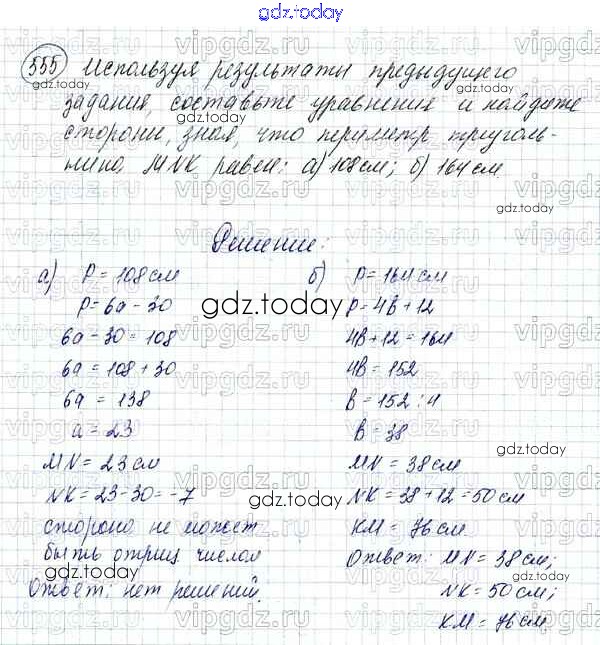 gdz.today
555 Используя результаты предыдущего
задания, составьте уравнение и найдите
стороны, зная, что периметр треуголь-
ника MNK равен: а) 108 см; б) 164 см
Решение:
а) P = 108 см
P = 6a - 30
6a - 30 = 108
6a = 108 + 30
6a = 138
a = 23
MN = 23 см
NK = 23 - 30 = -7
сторона не может
быть отриц числом
Ответ: нет решений.
б) P = 164 см
P = 4B + 12
4B + 12 = 164
4B = 152
B = 152 : 4
B = 38
MN = 38 см
NK = 38 + 12 = 50 см
KM = 76 см
Ответ: MN = 38 см;
NK = 50 см;
KM = 76 см
gdz.today
vipgdz.ru